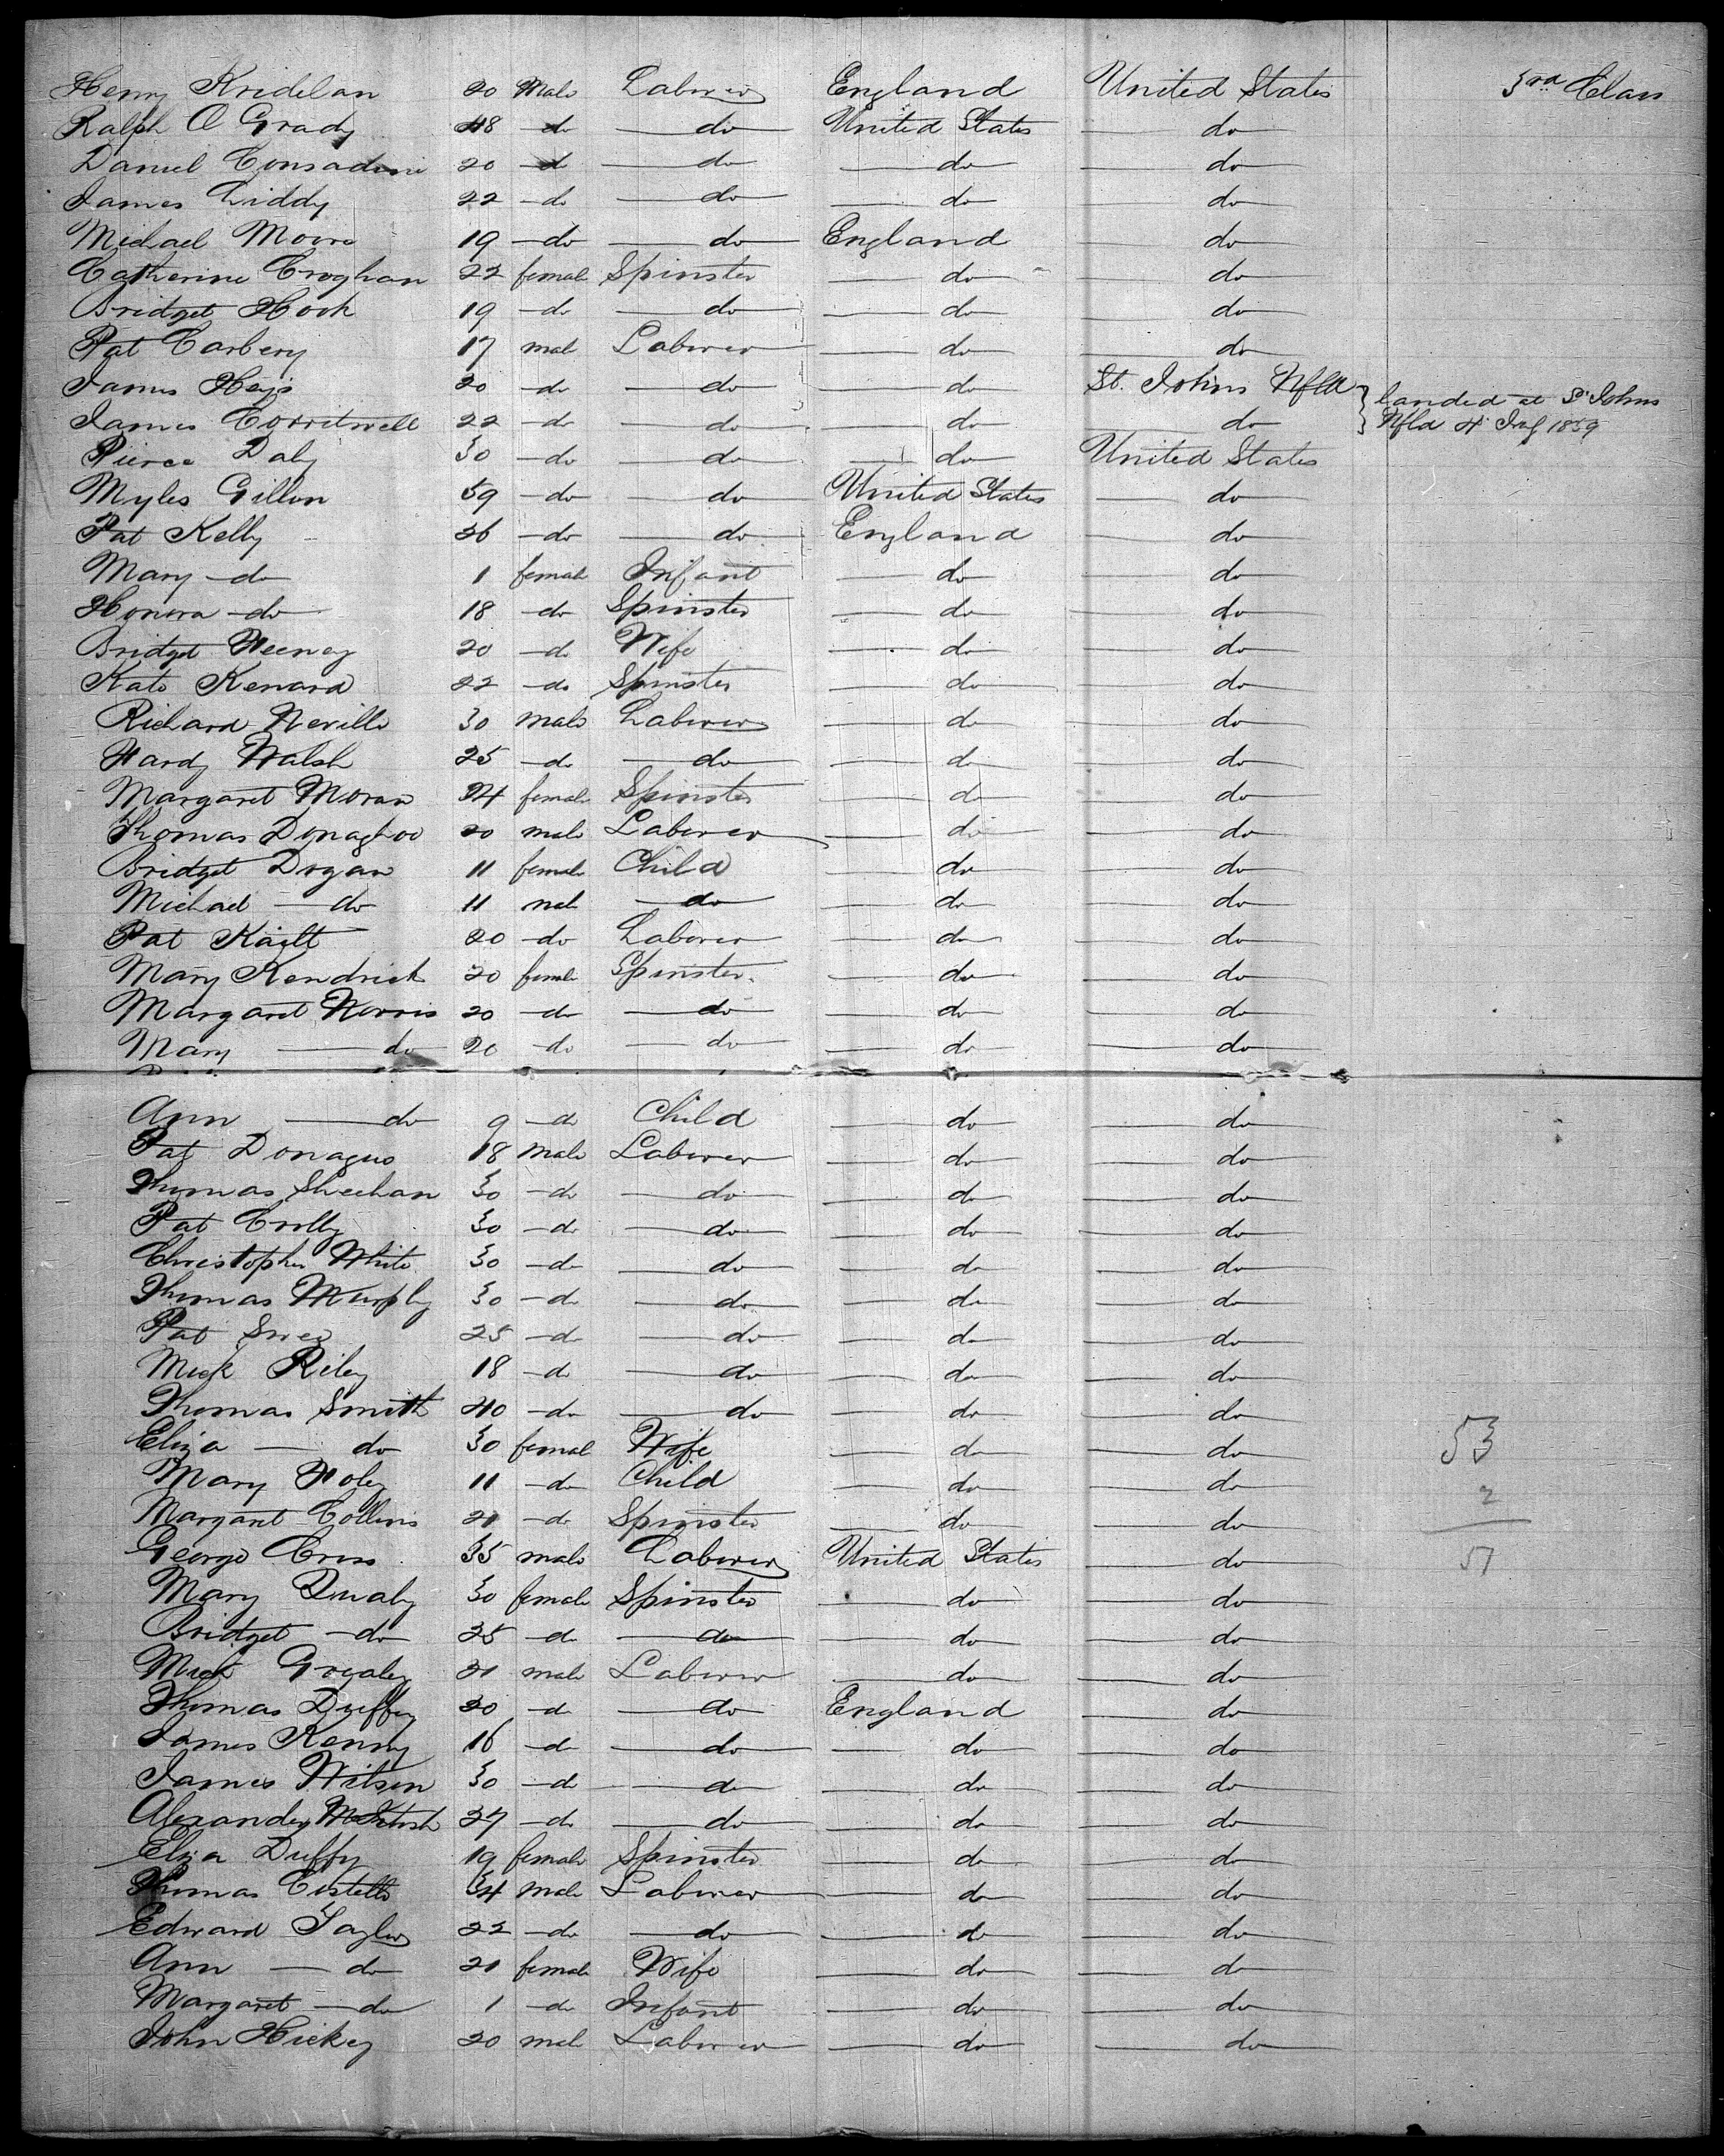 Henry Kridelan 20 Male Laborer England United States 3rd Class
Ralph O Grady 48 do do United States do
Daniel Consadine 20 do do do do
James Liddy 22 do do do do
Michael Moore 19 do do England do
Catherine Croghan 22 female Spinster do do
Bridget Hook 19 do do do do
Pat Carbery 17 male Laborer do do
James Hays 20 do do do St. Johns Nfld } landed at St Johns
James Corritwell 22 do do do do } Nfld 4 1859
Pierce Daly 30 do do do United States
Myles Gillon 59 do do United States do
Pat Kelly 26 do do England do
Mary do 1 female Infant do do
Honora do 18 do Spinster do do
Bridget Feeney 20 do Wife do do
Kate Kenard 22 do Spinster do do
Richard Neville 30 male Laborer do do
Hardy Walsh 25 do do do do
Margaret Moran 24 female Spinster do do
Thomas Donaghoo 20 male Laborer do do
Bridget Dogan 11 female Child do do
Michael do 11 male do do do
Pat 20 do Laborer do do
Mary Kendrick 20 female Spinster do do
Margaret Norris 20 do do do do
Mary do 20 do do do do
Ann do 9 do Child do do
Pat Donague 18 male Laborer do do
Thomas Sheehan 30 do do do do
Pat Crolly 30 do do do do
Christopher White 30 do do do do
Thomas Murphy 30 do do do do
Pat 25 do do do do
Mick Riley 18 do do do do
Thomas Smith 40 do do do do
Eliza do 30 female Wife do do 53
Mary Foley 11 do Child do do 2
Margaret Collins 21 do Spinster do do
George Cross 35 male Laborer United States do 51
Mary Dwaly 30 female Spinster do do
Bridget do 25 do do do do
Mick Grealey 21 male Laborer do do
Thomas Duffey 20 do do England do
James Kenny 16 do do do do
James Wilson 30 do do do do
Alexander McIntosh 27 do do do do
Eliza Duffy 19 female Spinster do do
Thomas Costello 34 male Laborer do do
Edward Taylor 22 do do do do
Ann do 21 female Wife do do
Margaret do 1 do Infant do do
John Hickey 20 male Laborer do do